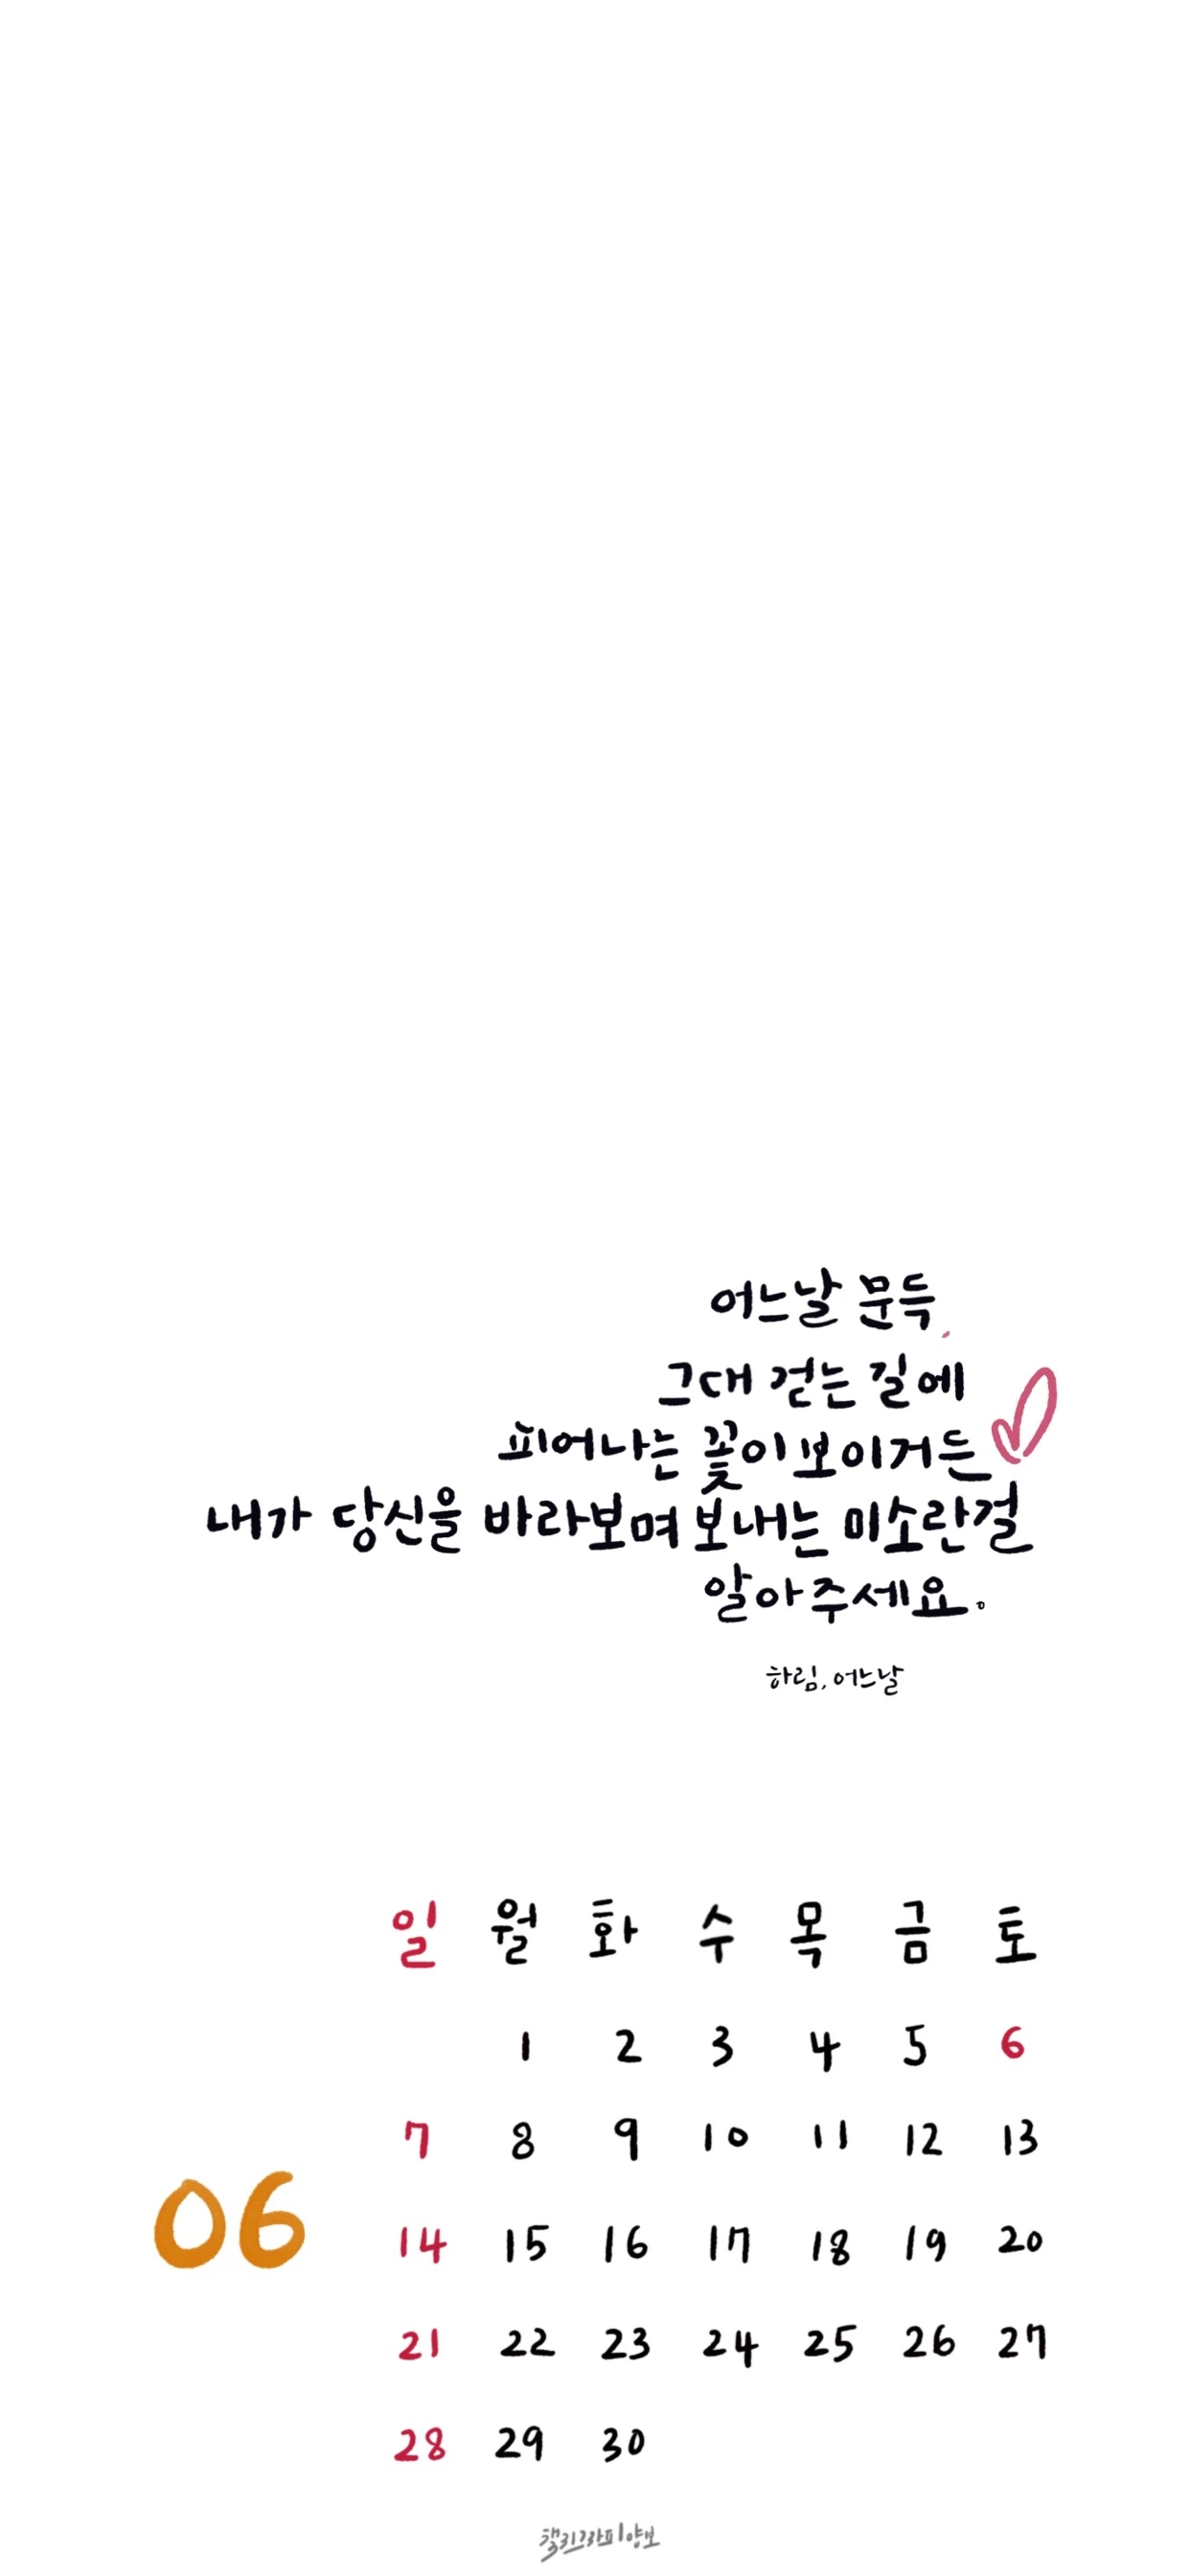 어느날 문득,
그대 걷는 길에
피어나는 꽃이 보이거든
내가 당신을 바라보며 보내는 미소란걸
알아주세요.
하림, 어느날
일 월 화 수 목 금 토
1 2 3 4 5 6
7 8 9 10 11 12 13
06
14 15 16 17 18 19 20
21 22 23 24 25 26 27
28 29 30
캘리그라피양보